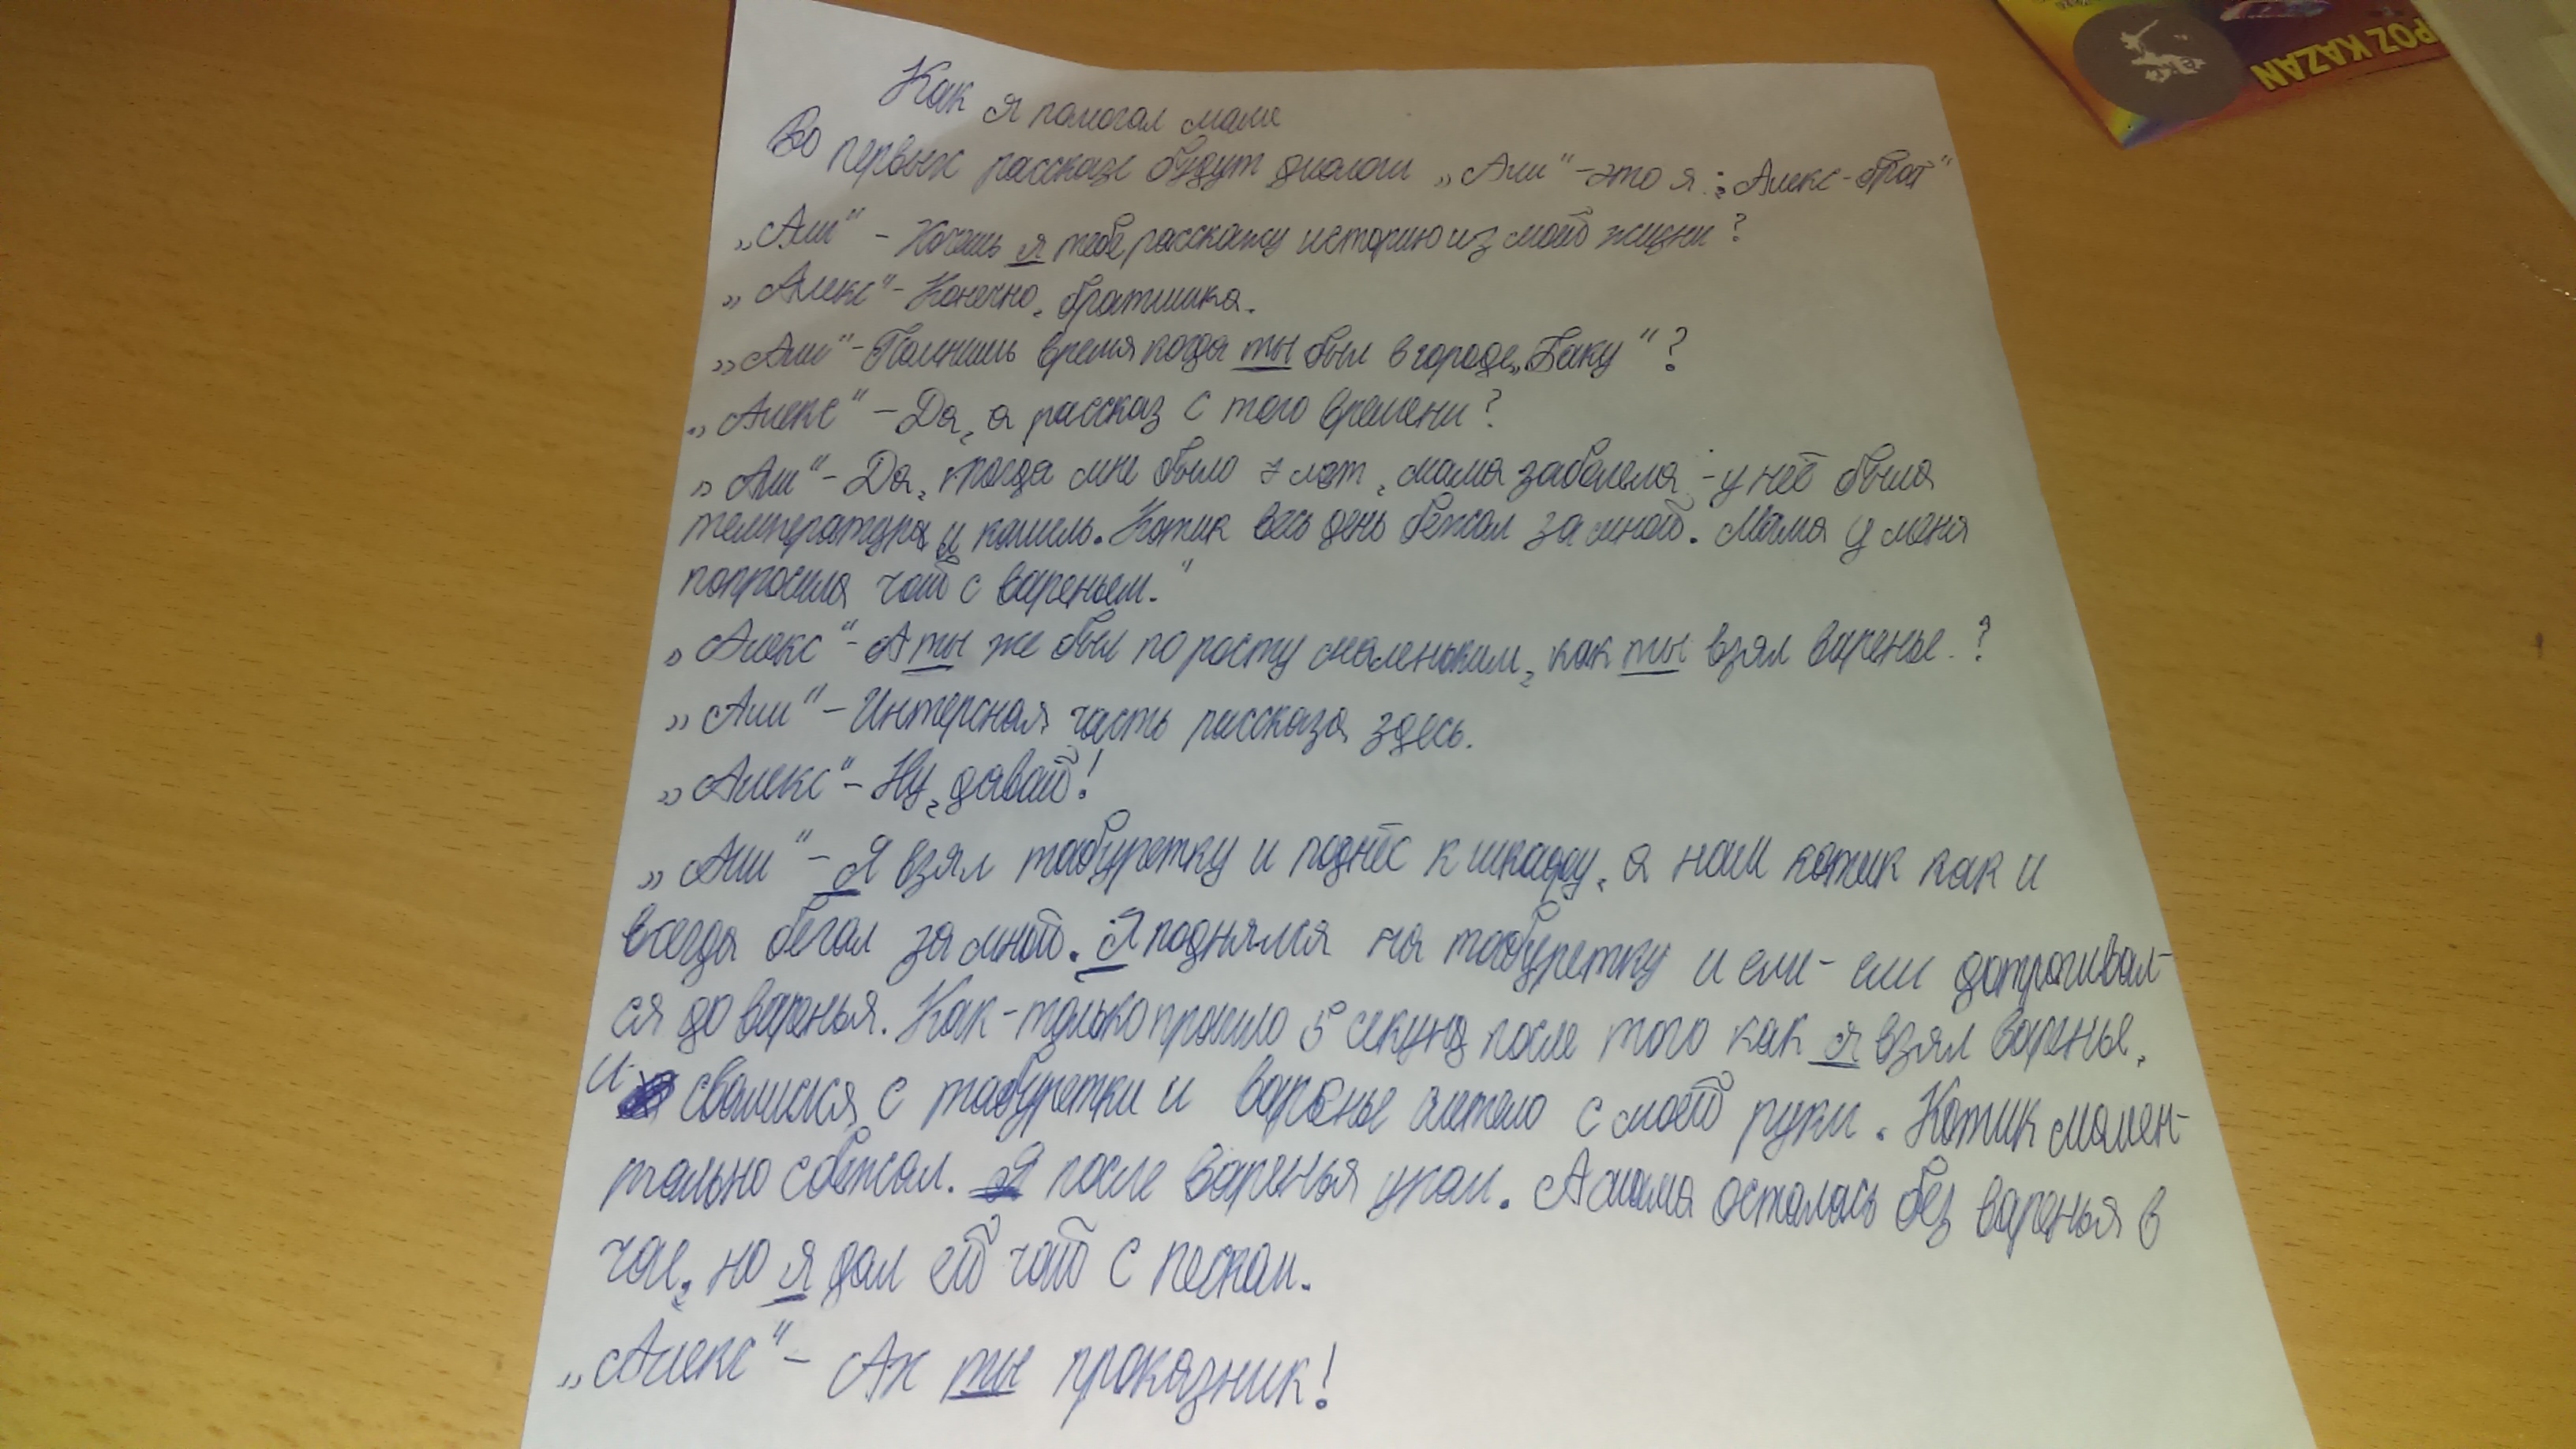 POZ KAZAN
Как я помогал маме
Во первых рассказе будут диологи „Али“ - это я ; Алекс - брат“
„Али“ - Хочешь я тебе расскажу историю из моей жизни?
„Алекс“ - Конечно, братишка.
„Али“ - Помнишь время когда ты был в городе „Баку“?
„Алекс“ - Да, а рассказ с того времени?
„Али“ - Да, тогда мне было 7 лет, мама заболела - у неё была
температура и кашель. Котик весь день бежал за мной. Мама у меня
попросила чай с вареньем.“
„Алекс“ - А ты же был по росту маленьким, как ты взял варенье.?
„Али“ - Интерсная часть рассказа здесь.
„Алекс“ - Ну, давай!
„Али“ - Я взял табуретку и поднёс к шкафу, а наш котик как и
всегда бегал за мной. Я поднялся на табуретку и ели-ели дотрагивал-
ся до варенья. Как-только прошло 5 секунд после того как я взял варенье,
и свалился с табуретки и варенье летело с моей руки. Котик момен-
тально сбежал. Я после варенья упал. А мама осталась без варенья в
чае, но я дал ей чай с песком.
„Алекс“ - Ах ты проказник!